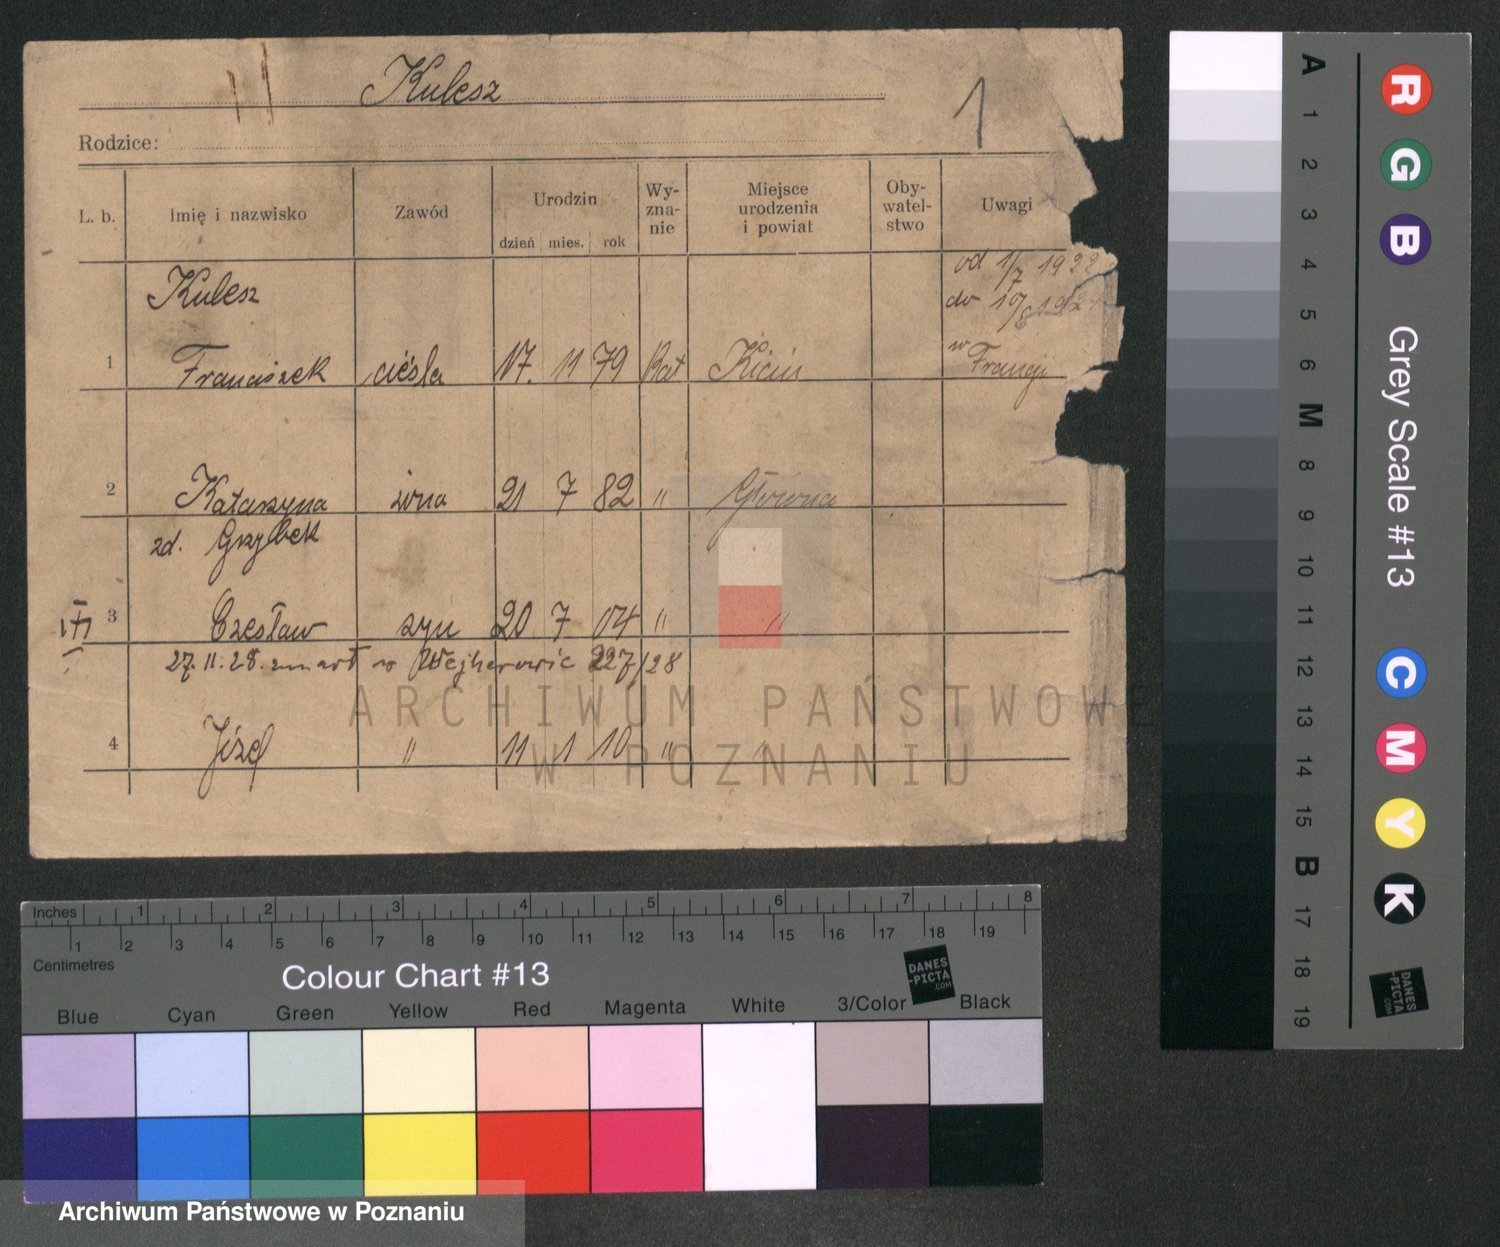 Kulesz
1
Rodzice:
L. b. Imię i nazwisko Zawód Urodzin dzień mies. rok Wy- zna- nie Miejsce urodzenia i powiat Oby- watel- stwo Uwagi
Kulesz od 1/7 1922
do 10/8 1924
1 Franciszek cieśla 17. 11 79 Kat Kicin w Francji
2 Katarzyna żona 21 7 82 " Główna
zd. Grzybek
3 Czesław syn 20 7 04 " "
27.11.28. zmarł w Wejherowie 227/28
4 Józef " 11 1 10 " "
ARCHIWUM PAŃSTWOWE
W POZNANIU
Inches 1 2 3 4 5 6 7 8
1 2 3 4 5 6 7 8 9 10 11 12 13 14 15 16 17 18 19
Centimetres
Colour Chart #13
DANES
-PICTA
.COM
Blue Cyan Green Yellow Red Magenta White 3/Color Black
Archiwum Państwowe w Poznaniu
A 1 2 3 4 5 6 M 8 9 10 11 12 13 14 15 B 17 18 19
R G B
Grey Scale #13
C M Y K
DANES
-PICTA
.COM